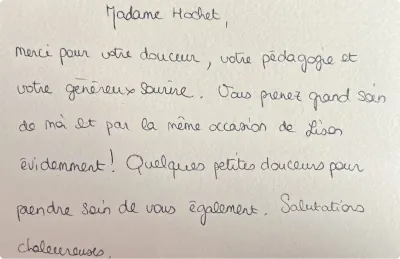 Madame Hochet,
Merci pour votre douceur, votre pédagogie et
votre généreux sourire. Vous prenez grand soin
de moi et par la même occasion de Lison
évidemment! Quelques petites douceurs pour
prendre soin de vous également. Salutations
chaleureuses.